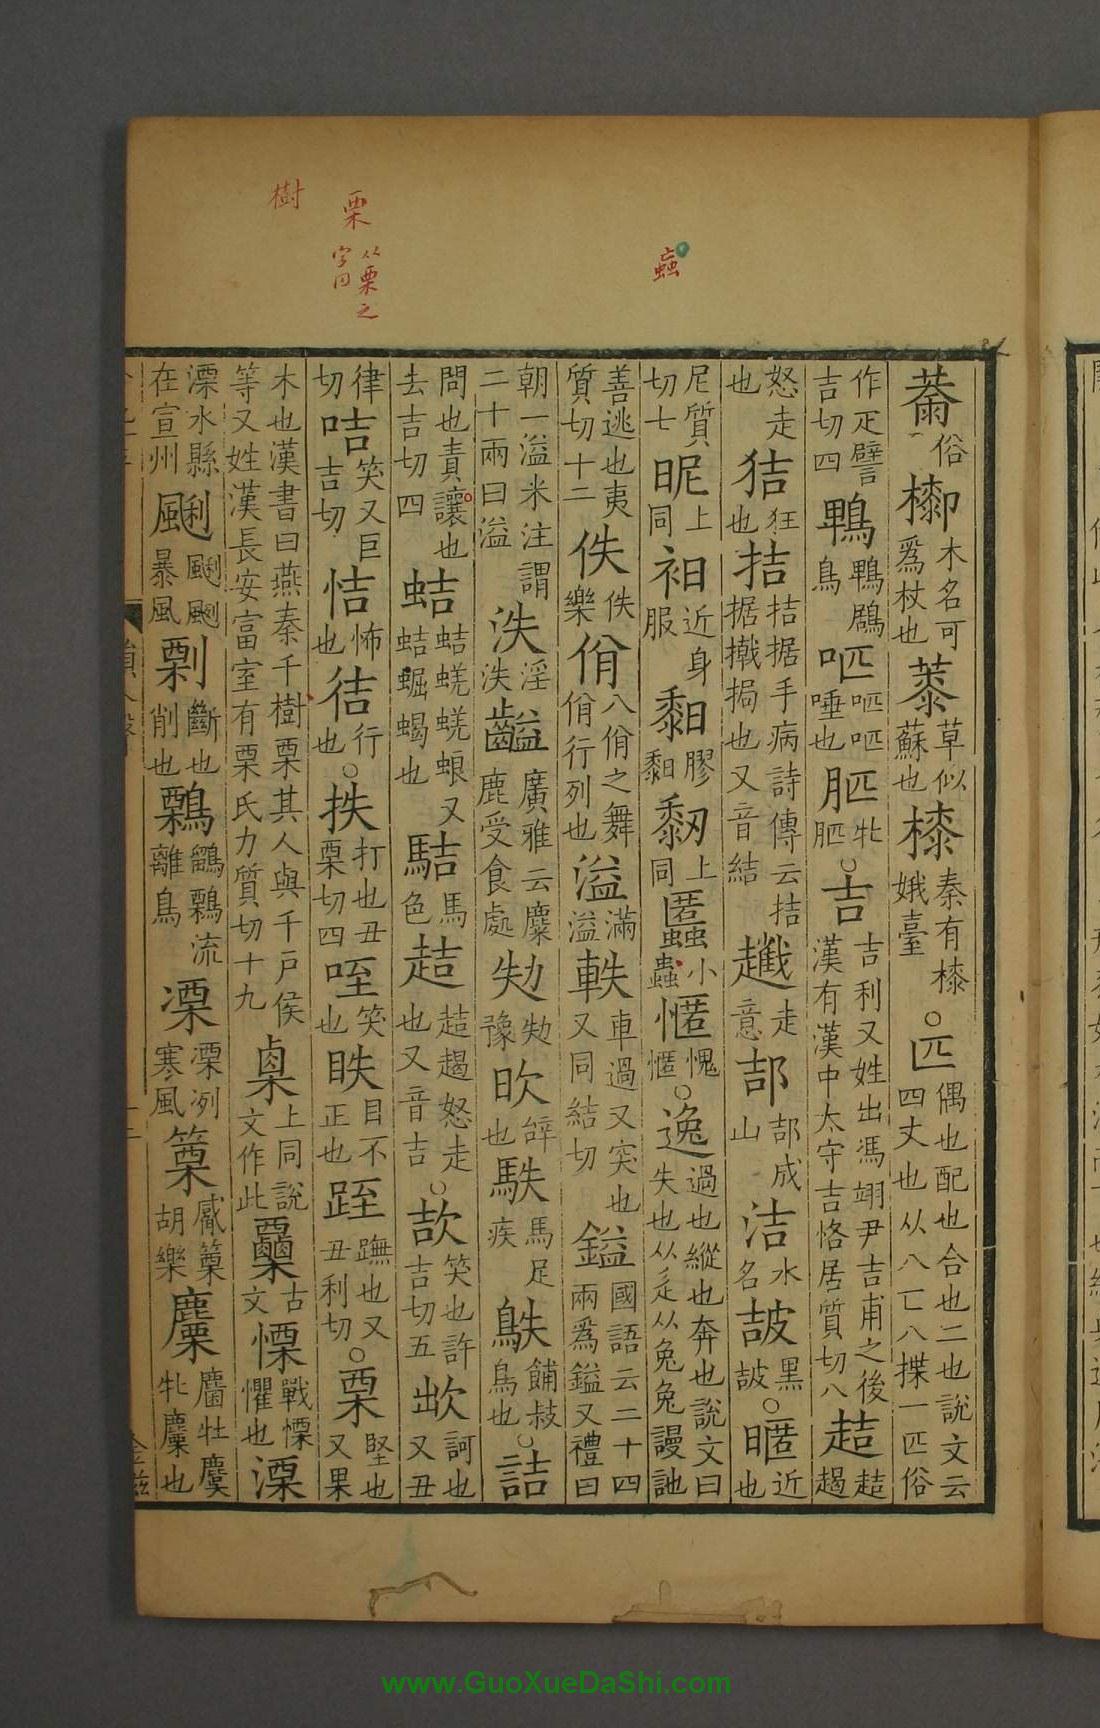 樹
栗
从栗之
字同
䘌
厀俗㯡木名可爲杖也䓭草似蘇也榛秦有榛娥臺○匹偶也配也合也二也說文云四丈也从八匸八揲一匹俗
作疋譬吉切四鴨鴨鶝鳥㕧㕧㕧唾也䏘牝䏘○吉吉利又姓出馮翊尹吉甫之後漢有漢中太守吉恪居質切八趌趌趨
怒走也狤狂也拮拮据手病詩傳云拮据撠挶也又音結䟇走意郆郆成山洁水名䫌黑䫌○暱近也
尼質切七昵上同衵近身服䵒膠黏䵑上同䘌小蟲㥾愧㥾○逸過也縱也奔也說文曰失也从辵从兔兔謾訑
善逃也夷質切十二佚佚樂佾八佾之舞佾行列也溢滿溢軼車過又突也又同結切鎰國語云二十四兩爲鎰又禮曰
朝一溢米注謂二十兩曰溢泆淫泆齸廣雅云麋鹿受食處劮劮豫欥辝也駃馬足疾鴃鳥也餔敊○詰
問也責讓也去吉切四蛣蛣蜣蜣蜋又蛣蝠蝎也䮀馬色趌趌趨怒走也又音吉○欯笑也許吉切五欪訶也又丑
律切咭笑又巨吉切佶怖也徍行也○抶打也丑栗切四咥笑也眣目不正也跮踇也又丑利切○栗堅也又果
木也漢書曰燕秦千樹栗其人與千戶侯等又姓漢長安富室有栗氏力質切十九㮚上同說文作此𥻆古文慄戰慄懼也溧
溧水縣在宣州颲颲颲暴風㓼斷也削也鷅鶹鷅流離鳥凓凓冽寒風篥觱篥胡樂麜麕牡麌牝麜也